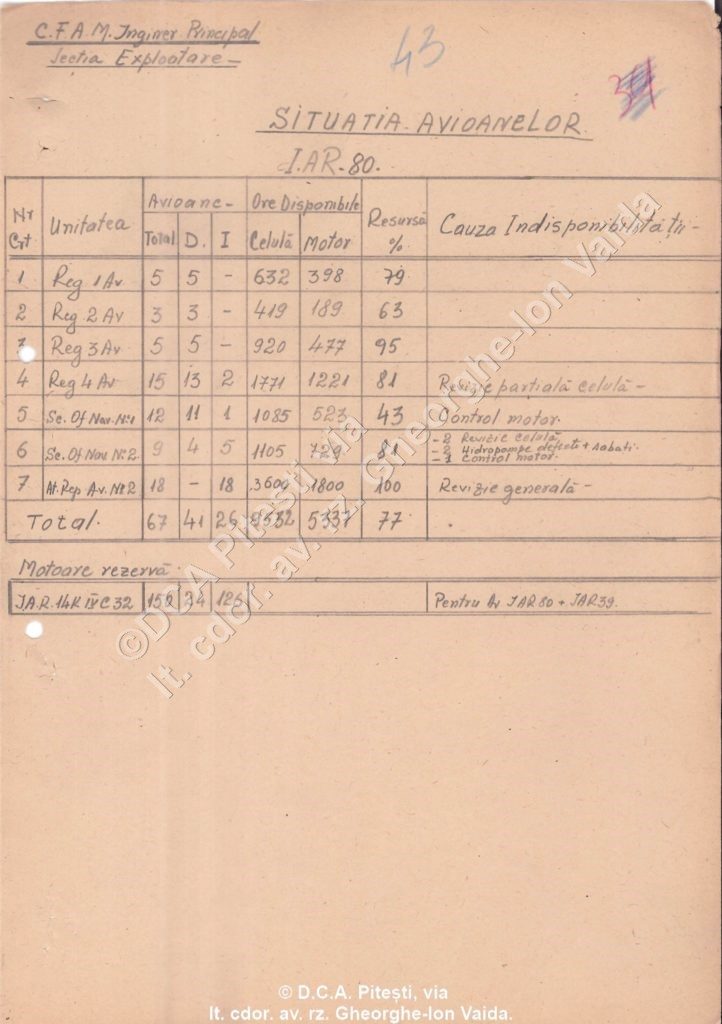 C.F.A.M. Inginer Principal
Secția Exploatare -
43
SITUATIA AVIOANELOR
I.AR-80.
Nr Crt Unitatea Avioane - Ore Disponibile Resursă % Cauza Indisponibilității -
Total D. I Celulă Motor
1 Reg 1 Av 5 5 - 632 398 79
2 Reg 2 Av 3 3 - 419 189 63
Reg 3 Av 5 5 - 920 477 95
4 Reg 4 Av 15 13 2 1771 1221 81 Revizie parțială celulă -
5 Sc. Of Nav. Nº1 12 11 1 1085 523 43 Control motor.
6 Sc. Of Nav Nº2. 9 4 5 1105 729 81 - 2 Revizie celulă
- 2 Hidropompe defecte + sabati.
- 1 Control motor.
7 At. Rep Av. Nº2 18 - 18 3600 1800 100 Revizie generală -
Total. 67 41 26 9532 5337 77 .
Motoare rezervă.
I.A.R. 14K IV C 32 150 24 126 Pentru Av IAR 80 + IAR 39.
©D.C.A Pitești, via
lt. cdor. av. rz. Gheorghe-Ion Vaida
© D.C.A. Pitești, via
lt. cdor. av. rz. Gheorghe-Ion Vaida.